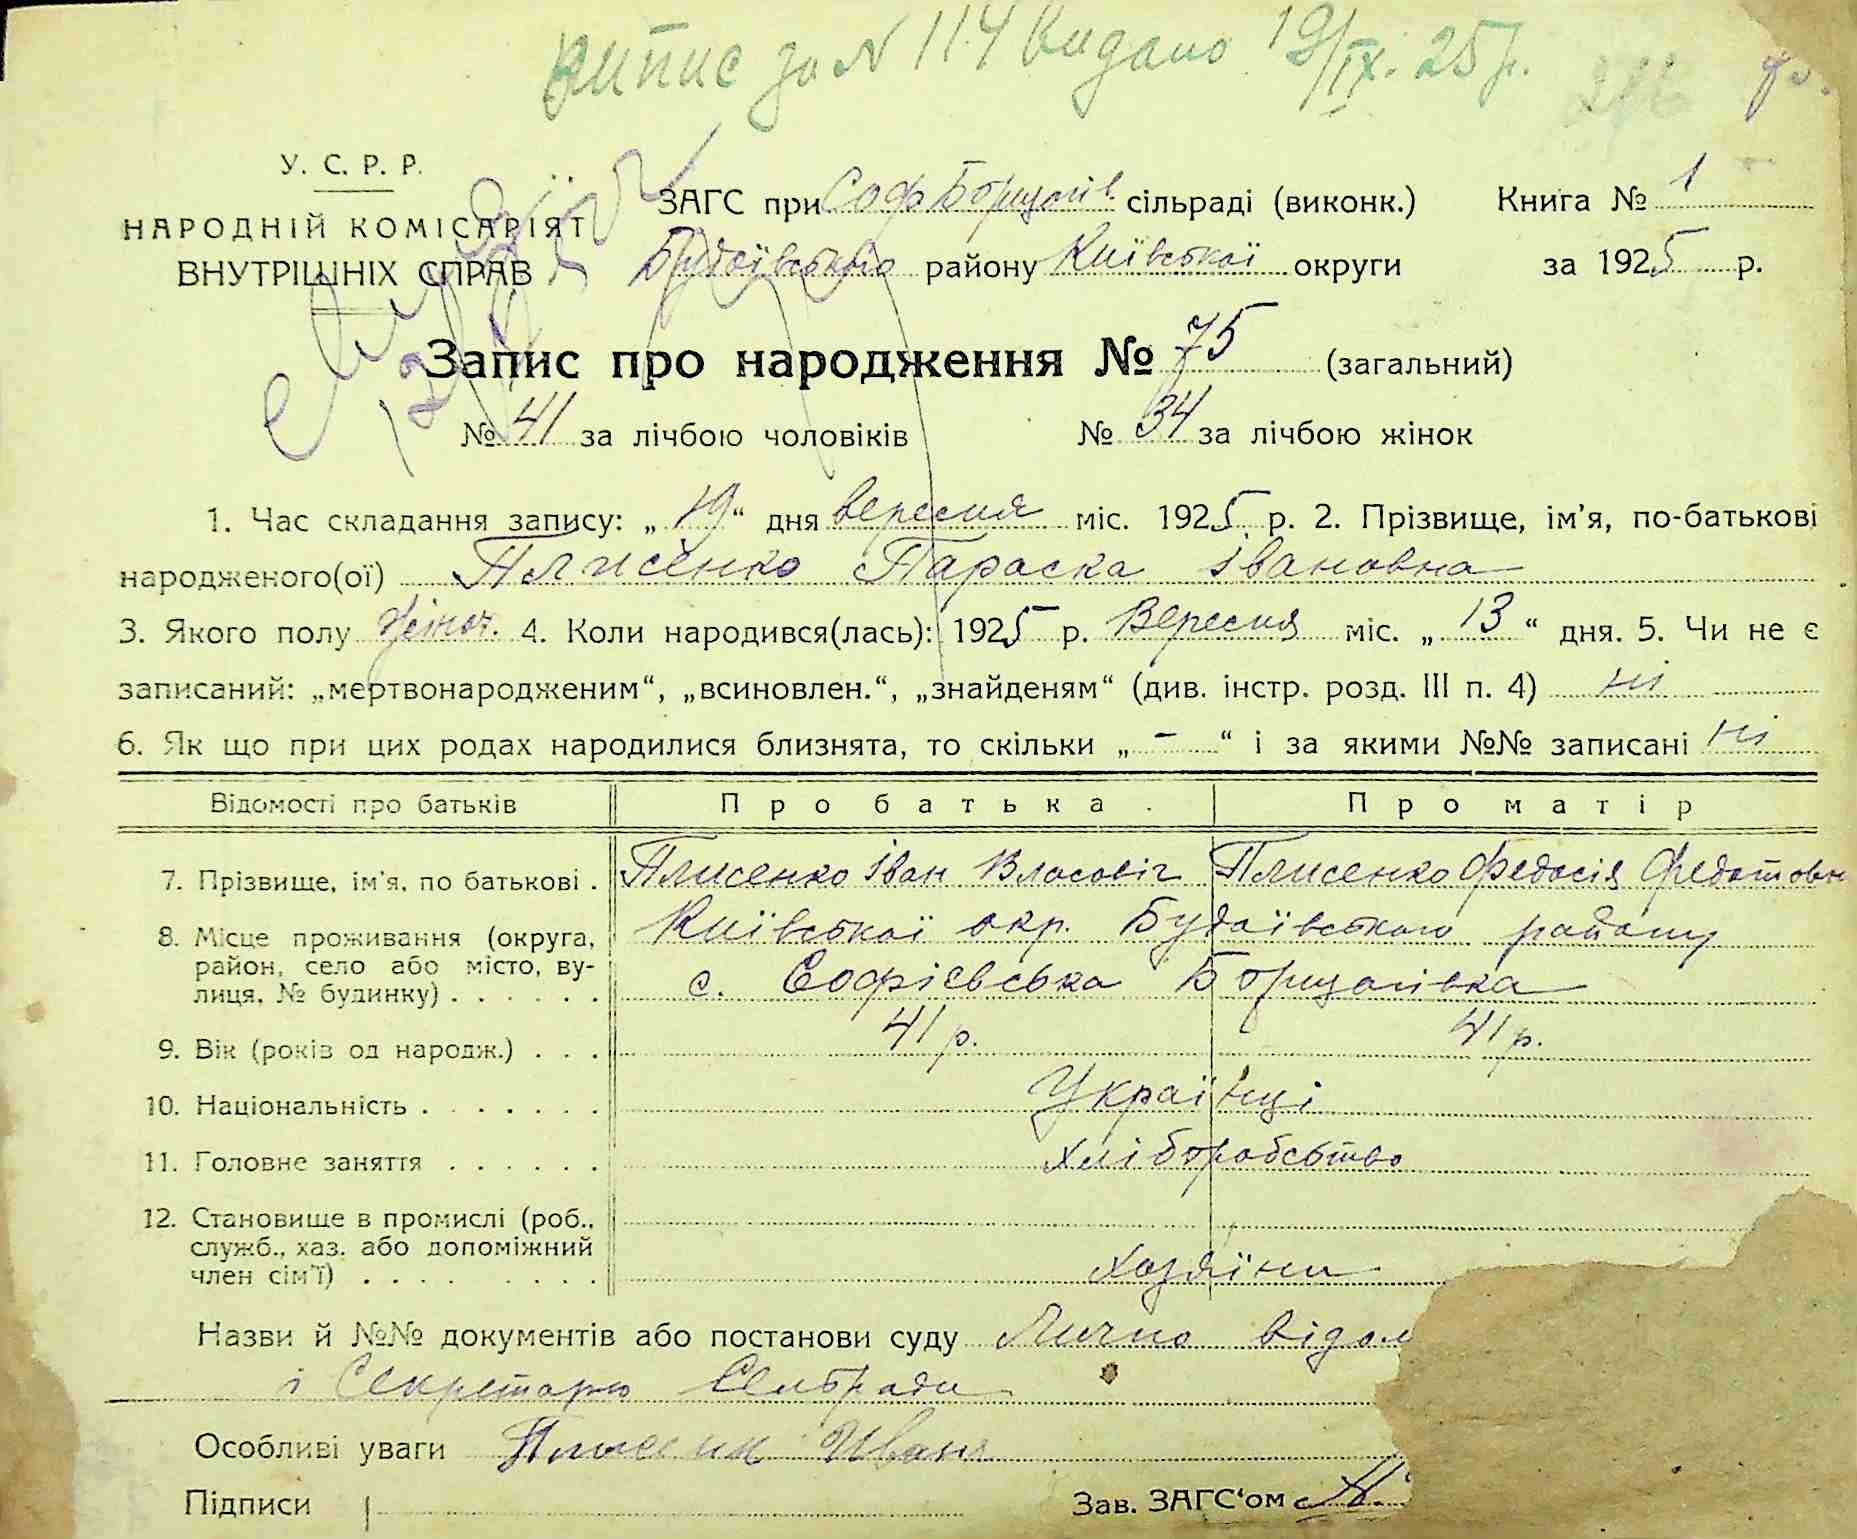 Випис за № 114 видано 19/IX. 25 р.
У. С. Р. Р.
НАРОДНІЙ КОМІСАРІЯТ
ВНУТРІШНІХ СПРАВ
ЗАГС при Соф Борщагів сільраді (виконк.) Книга № 1
Будаївського району Київської округи за 1925 р.
Запис про народження № 75 (загальний)
№ 41 за лічбою чоловіків № 34 за лічбою жінок
1. Час складання запису: „ 19 “ дня вересня міс. 1925 р. 2. Прізвище, ім'я, по-батькові
народженого(ої) Плисенко Параска Івановна
3. Якого полу жіноч. 4. Коли народився(лась): 1925 р. Вересня міс. „ 13 “ дня. 5. Чи не є
записаний: „мертвонародженим“, „всиновлен.“, „знайденям“ (див. інстр. розд. III п. 4) ні
6. Як що при цих родах народилися близнята, то скільки „ - “ і за якими №№ записані ні
Відомості про батьків Про батька. Про матір
7. Прізвище, ім'я, по батькові . Плисенко Іван Власовіч Плисенко Федосія Федотовн
8. Місце проживання (округа, Київської окр. Будаївського району
район, село або місто, ву- с. Софієвська Борщагівка
лиця, № будинку) . . . . . .
9. Вік (років од народж.) . . . 41 р. 41 р.
10. Національність . . . . . . . Українці
11. Головне заняття . . . . . . Хліборобство
12. Становище в промислі (роб.,
служб., хаз. або допоміжний
член сім'ї) . . . . . . . . . Хозяїни
Назви й №№ документів або постанови суду Лично відом
і Секретарю Сельради
Особливі уваги Иванъ
Підписи Зав. ЗАГС‘ом